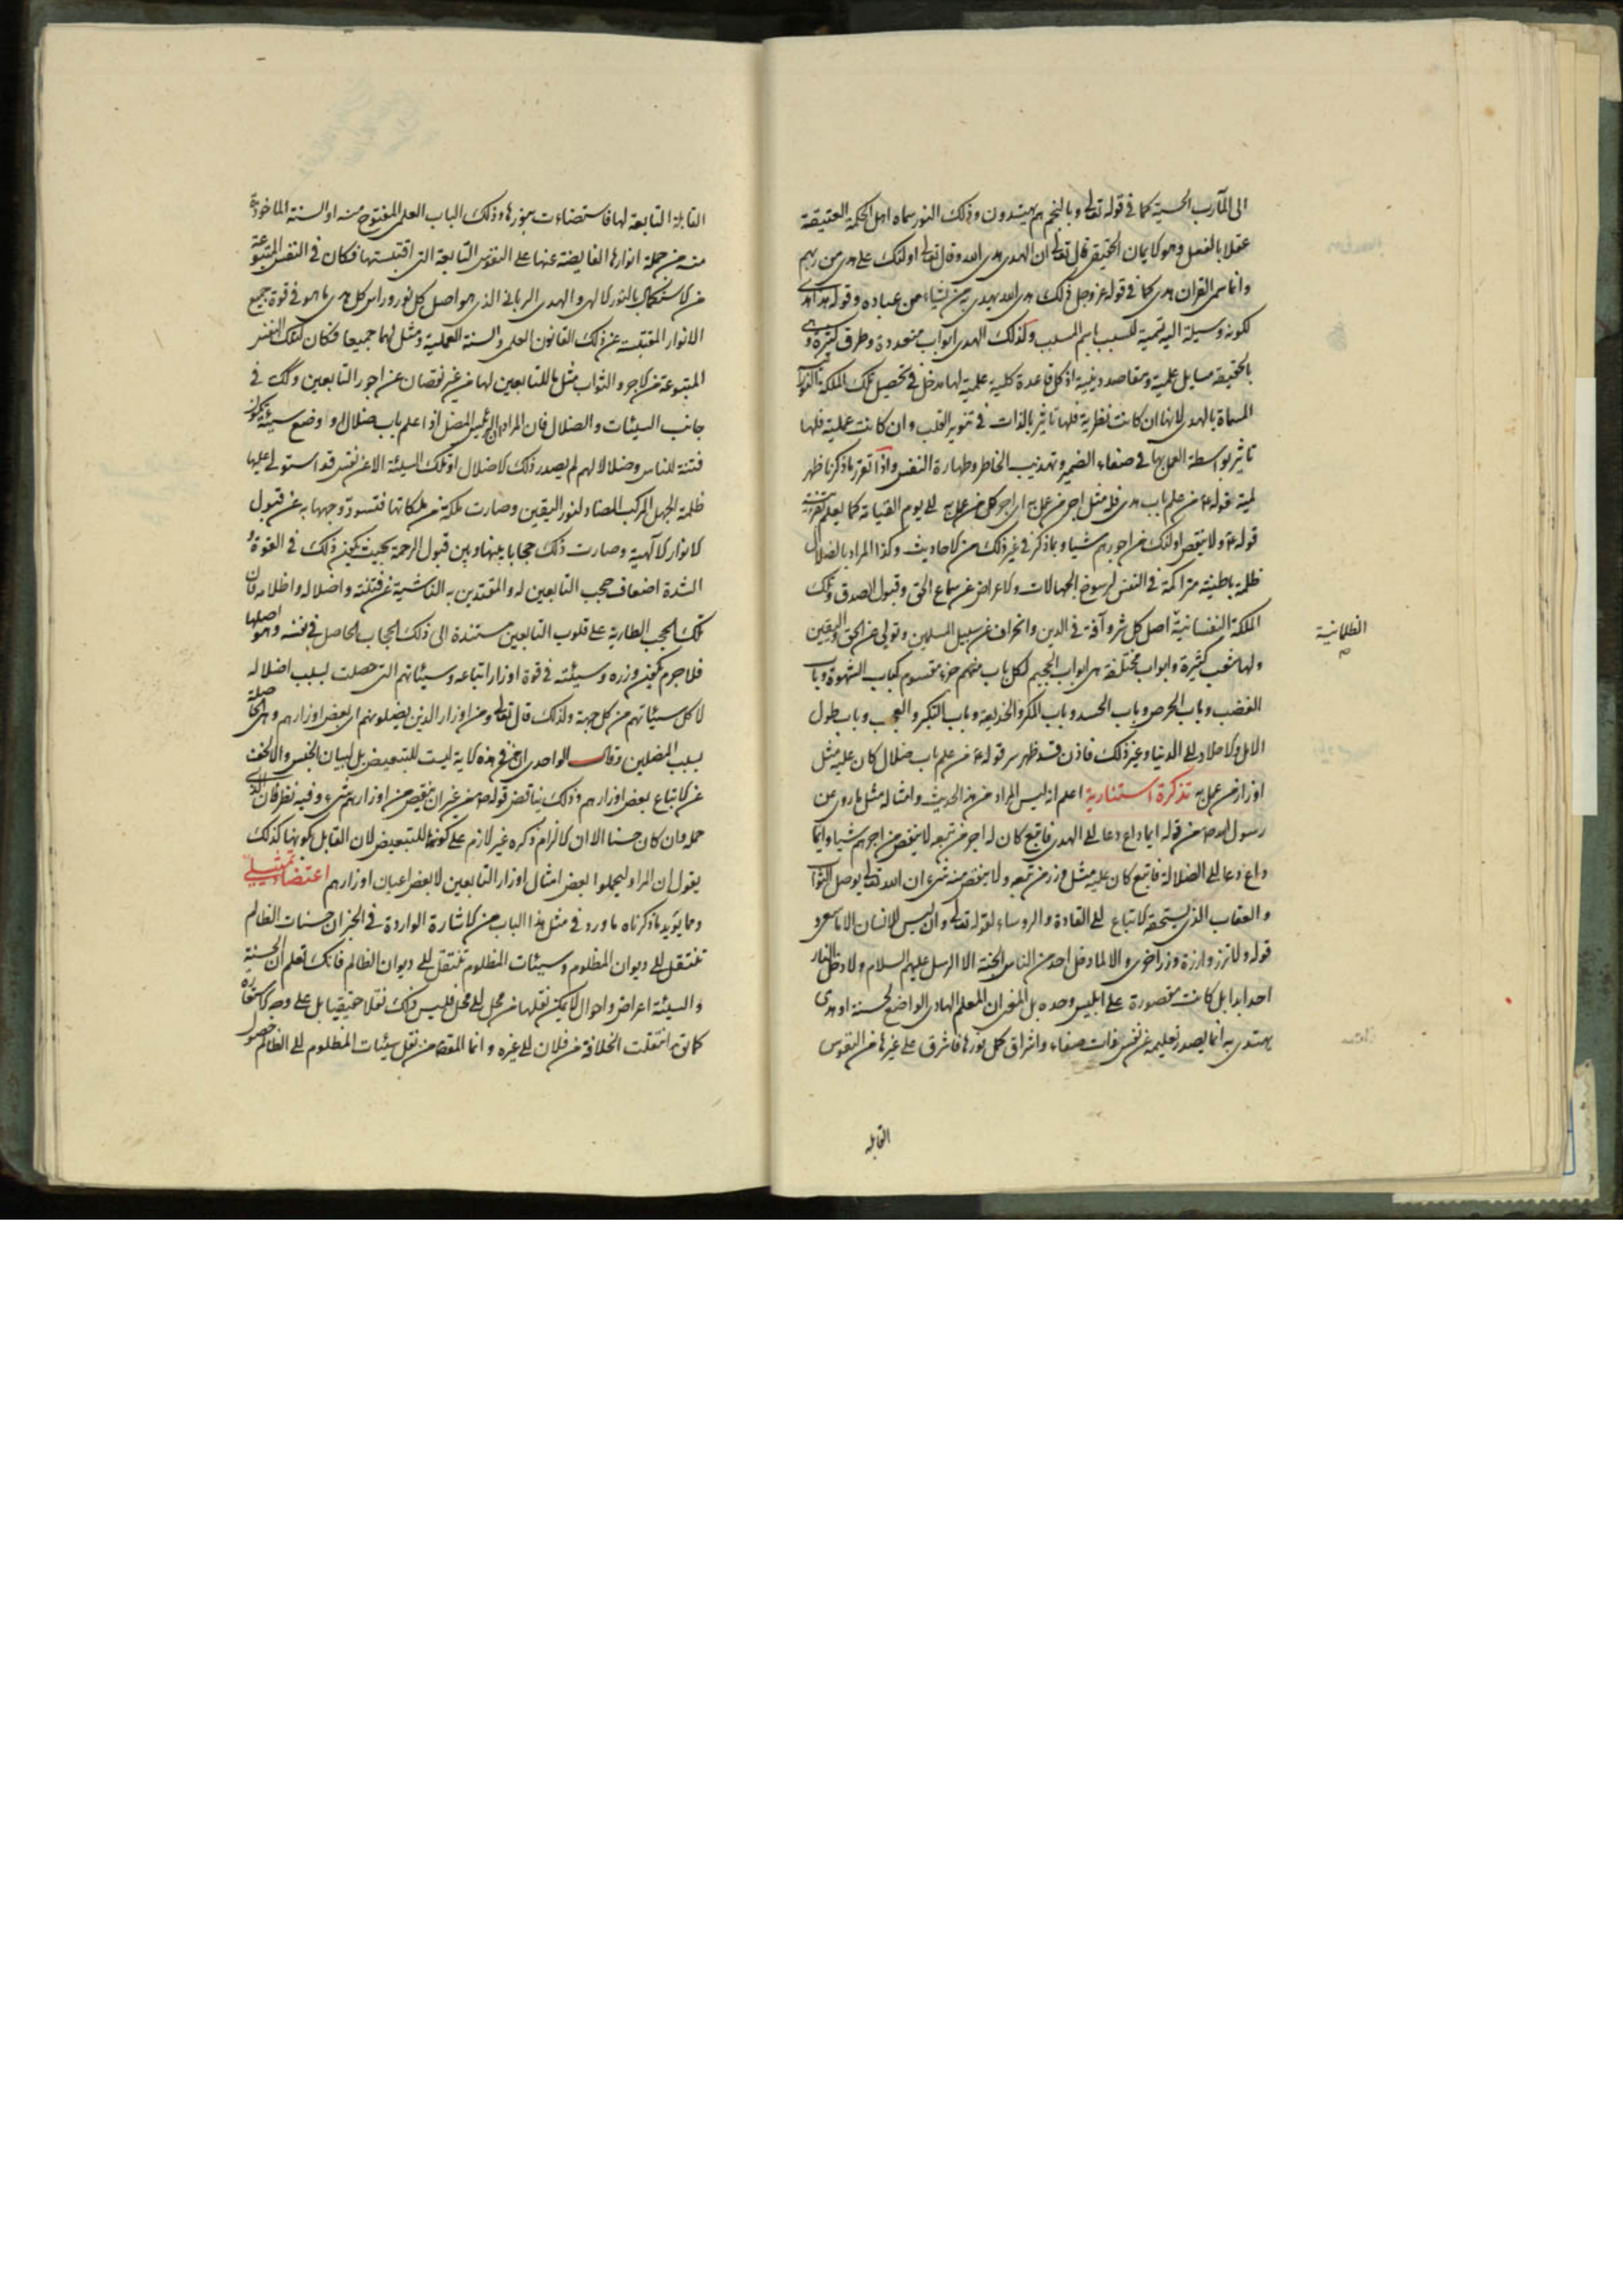 الى المآرب الحسية كما في قوله تعالى وبالنجم هم يهتدون وذلك النور سماه اهل الحكمة العتيقة
عقلا بالفعل وهو الايمان الحقيقي قال تعالى ان الهدى هدى الله وقال تعالى اولئك على هدى من ربهم
وانما سمى القران هدى كما في قوله عز وجل ذلك هدى الله يهدي به من يشاء من عباده وقوله هذا هدى
لكونه وسيلة اليه تسمية للسبب باسم المسبب وكذلك الهدى ابواب متعددة وطرق كثيرة وهي
بالحقيقة مسايل علمية ومقاصد دينية اذ كل قاعدة كلية علمية لها مدخل في تحصيل تلك الملكة النورانية
المسماة بالهدى لانها ان كانت نظرية فلها تاثير بالذات في تنوير القلب وان كانت عملية فلها
تاثير بواسطة العمل بها في صفاء الضمير وتهذيب الخاطر وطهارة النفس واذا تقرر ما ذكرنا ظهر
لمية قوله ع من علم باب هدى فله مثل اجر من عمل به اي اجر كل من عمل به الى يوم القيامة كما يعلم بقرينة
قوله ع ولا ينقص اولئك من اجورهم شيا وبما ذكر في غير ذلك من الاحاديث وكذا المراد بالضلال
ظلمة باطنية متراكمة في النفس لرسوخ الجهالات والاعراض عن سماع الحق وقبول الصدق وتلك
الملكة النفسانية اصل كل شر وآفة في الدين وانحراف عن سبيل المسلمين وتولي عن الحق واليقين
الظلمانية
ولها شعب كثيرة وابواب مختلفة هي ابواب الجحيم لكل باب منهم جزء مقسوم كباب الشهوة وباب
الغضب وباب الحرص وباب الحسد وباب المكر والخديعة وباب التكبر والعجب وباب طول
الامل والاخلاد الى الدنيا وغير ذلك فاذن قد ظهر سر قوله ع من علم باب ضلال كان عليه مثل
اوزار من عمل به تذكرة استنارية اعلم انه ليس المراد من هذا الحديث وامثاله مثل ما روى عن
رسول الله ص من قوله ايما داع دعا الى الهدى فاتبع كان له اجر من تبعه لا ينقص من اجرهم شيا وايما
داع دعا الى الضلالة فاتبع كان عليه مثل وزر من تبعه ولا ينقص منه شيء ان الله تعالى يوصل الثواب
والعقاب الذي يستحقه الاتباع الى القادة والروساء لقوله تعالى وان ليس للانسان الا ما سعى و
قوله ولا تزر وازرة وزر اخرى والا لما دخل احد من الناس الجنة الا الرسل عليهم السلام ولا دخل النار
احد ابدا بل كانت مقصورة على ابليس وحده بل المعنى ان المعلم الهادي الواضع لحسنة او هدى
يهتدى به انما يصدر تعليمه عن نفس ذات صفاء واشراق كمل نورها فاشرق على غيرها من النفوس
القابلة
القابلة التابعة لها فاستضاءت بنورها وذلك الباب العلمي المفتوح منه او السنة الماخوذة
منه من جملة انوارها الفايضة عنها على النفوس التابعة التي اقتبستها فكان في النفس المتبوعة
من الاستكمال بالنور الالهي والهدى الرباني الذي هو اصل كل نور وراس كل هدى ما هو في قوة جميع
الانوار المقتبسة عن ذلك القانون العلمي والسنة العملية ومثل لهما جميعا فكان لتلك النفس
المتبوعة من الاجر والثواب مثل ما للتابعين لها من غير نقصان عن اجور التابعين وكك في
جانب السيئات والضلال فان المراد ان الرئيس المضل اذا علم باب ضلال او وضع سيئة تكون
فتنة للناس وضلالا لهم لم يصدر ذلك الاضلال او تلك السيئة الا عن نفس قد استولى عليها
ظلمة الجهل المركب المضاد لنور اليقين وصارت ملكة من ملكاتها فتسود وجهها به عن قبول
الانوار الالهية وصارت ذلك حجابا بينها وبين قبول الرحمة بحيث يكون ذلك في القوة و
الشدة اضعاف حجب التابعين له والمقتدين به الناشية عن فتنته واضلاله واظلامه فان
تلك الحجب الطارية على قلوب التابعين مستندة الى ذلك الحجاب الحاصل في نفسه وهو اصلها
فلا جرم يكون وزره وسيئته في قوة اوزار اتباعه وسيئاتهم التي حصلت بسبب اضلاله
لا كل سيئاتهم من كل جهة ولذلك قال تعالى ومن اوزار الذين يضلونهم اي بعض اوزارهم وهي الحاصلة
بسبب المضلين وقال الواحدي ان من في هذه الاية ليست للتبعيض بل لبيان الجنس والا لخف
عن الاتباع بعض اوزارهم وذلك يناقض قوله ص من غير ان ينقص من اوزارهم شيء وفيه نظر فان الذي
حمله وان كان حسنا الا ان الالزام ذكره غير لازم على كونها للتبعيض لان القايل بكونها كذلك
يقول ان المراد ليحملوا بعض امثال اوزار التابعين لا بعض اعيان اوزارهم اعتضاد تمثيلي
ومما يويد ما ذكرناه ما ورد في مثل هذا الباب من الاشارة الواردة في الخبر ان حسنات الظالم
تنتقل الى ديوان المظلوم وسيئات المظلوم تنتقل الى ديوان الظالم فانك تعلم ان الحسنة
والسيئة اعراض واحوال لا يمكن نقلها من محل الى محل فليس ذلك نقلا حقيقيا بل على وجه الاستعارة
كما يق انتقلت الخلافة من فلان الى غيره وانما المقصود من نقل سيئات المظلوم الى الظالم حصول